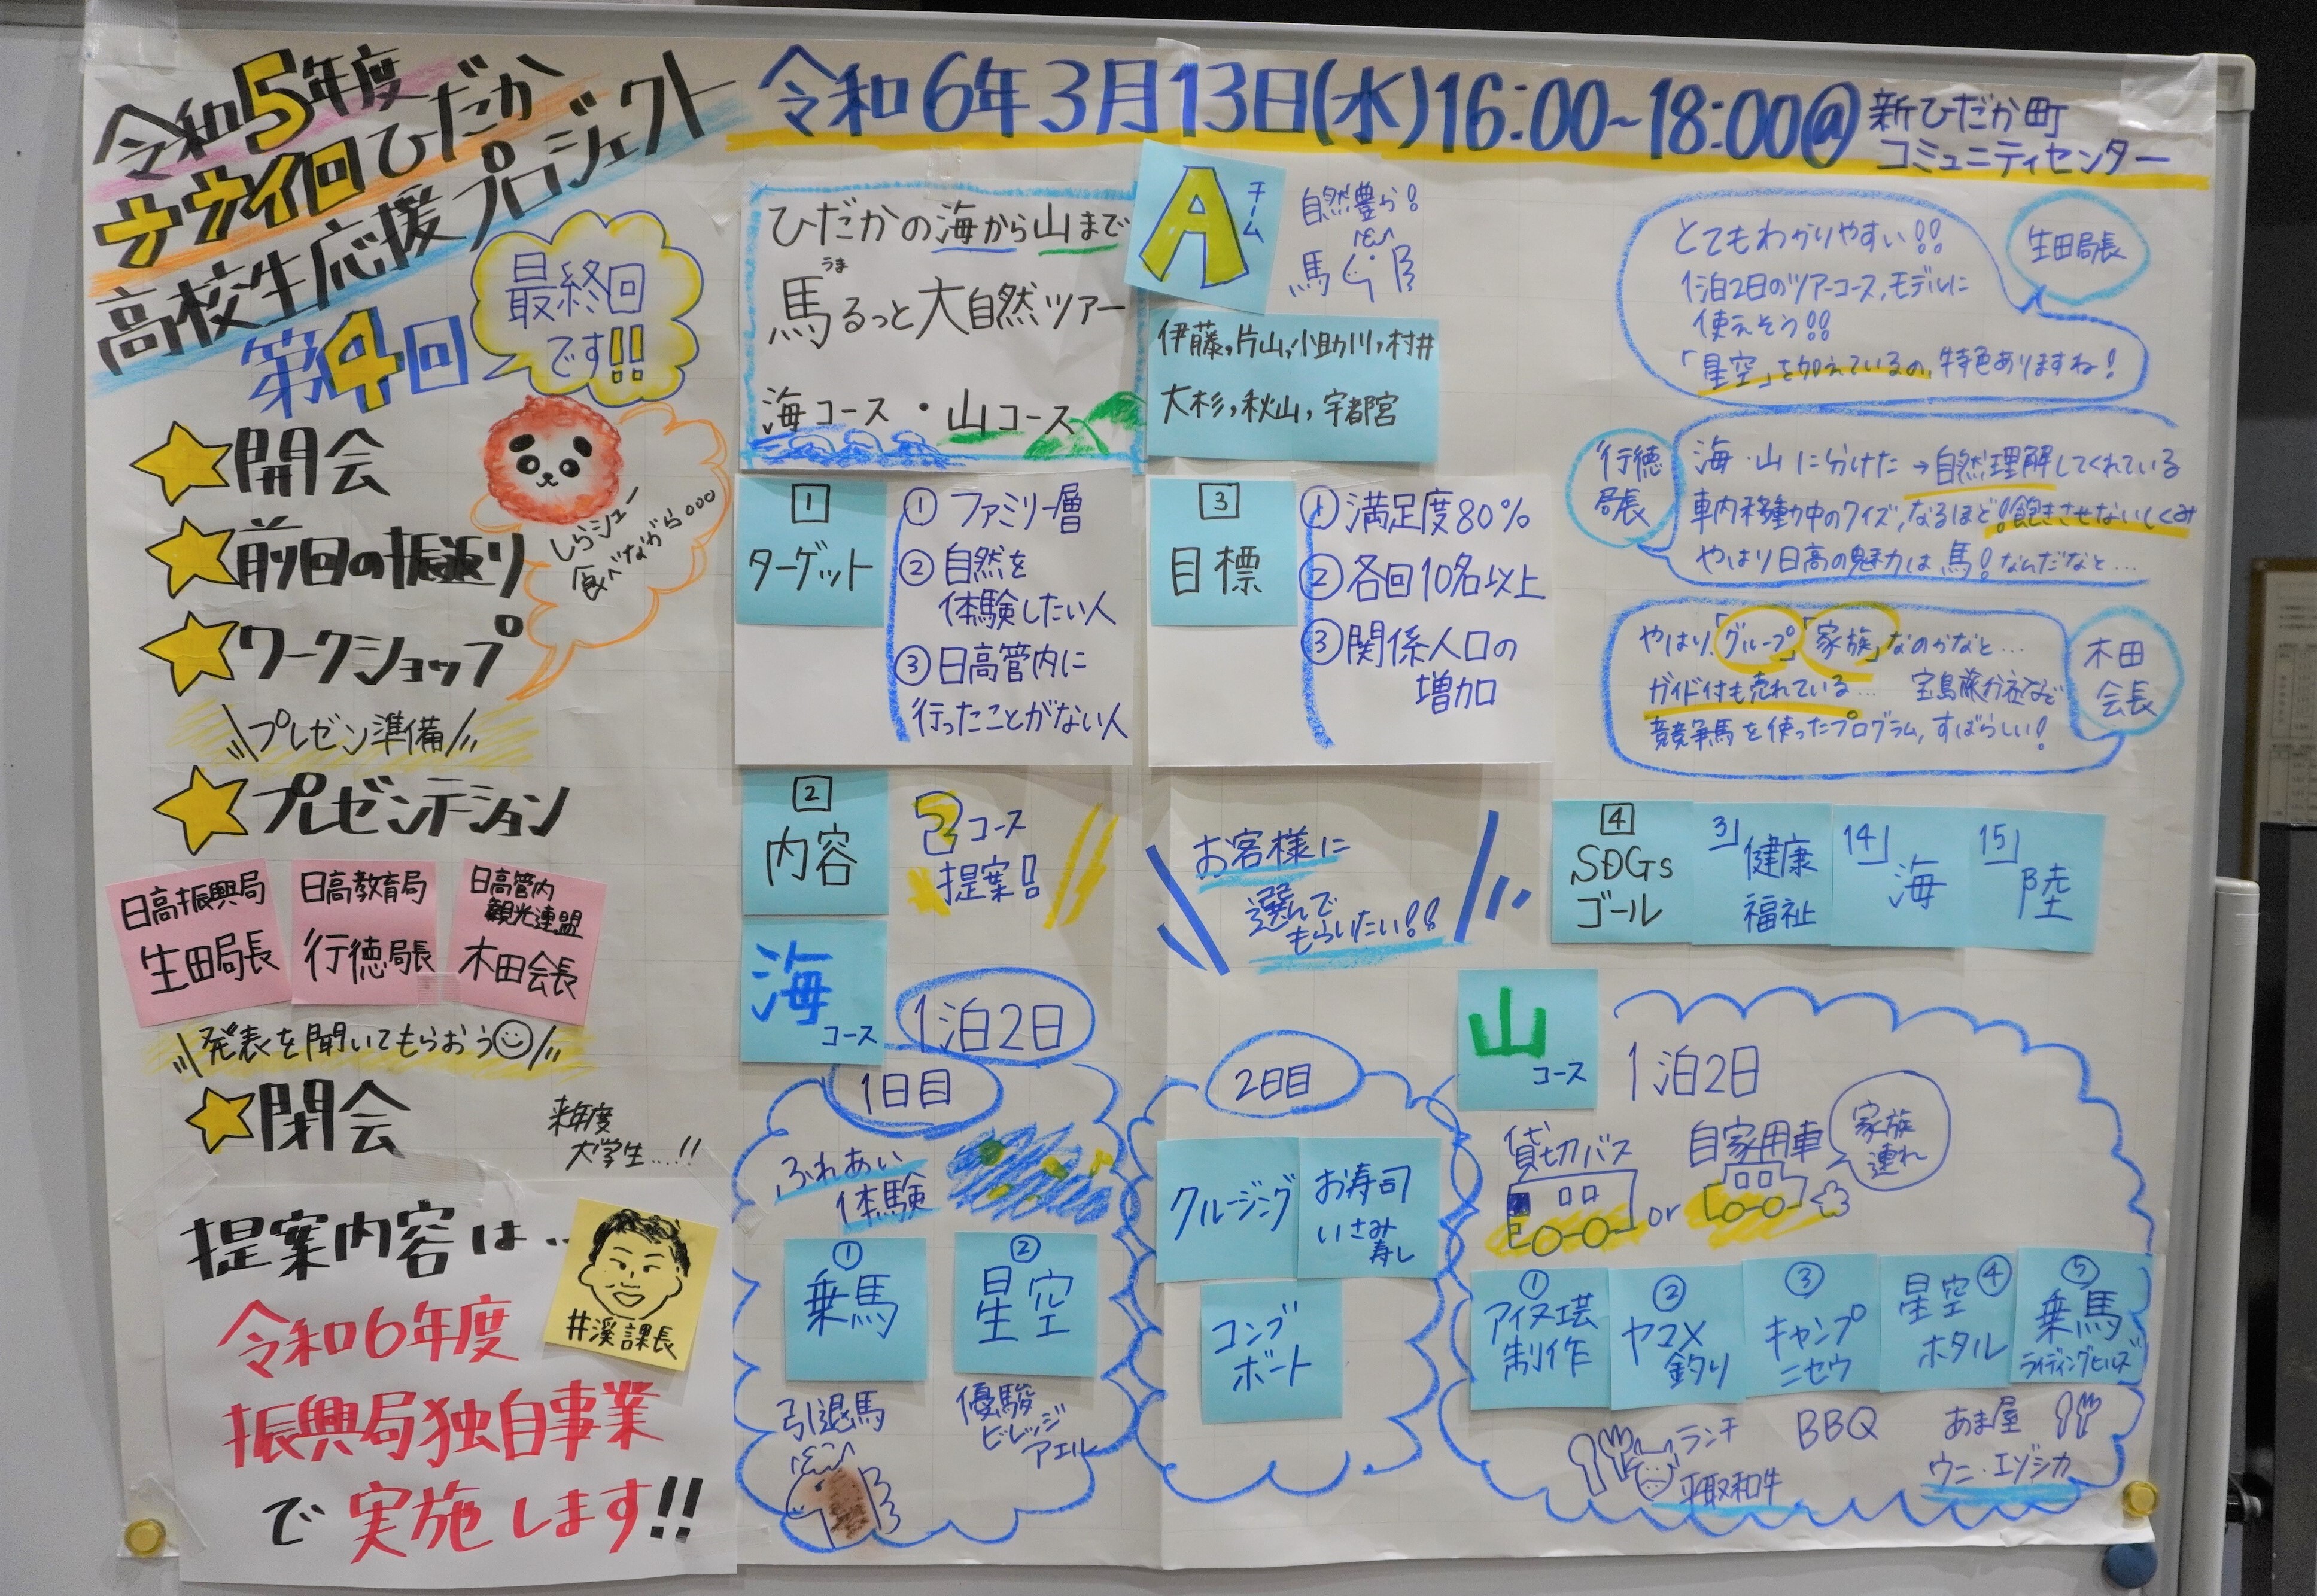 令和5年度
ナナイロひだか
高校生応援プロジェクト
第4回
最終回
です!!
令和6年3月13日(水)16:00~18:00@
新ひだか町
コミュニティセンター
★開会
しらシュー
食べながら○○○
★前回の振返り
★ワークショップ
\\プレゼン準備//
★プレゼンテーション
日高振興局
生田局長
日高教育局
行徳局長
日高管内
観光連盟
木田会長
\\発表を聞いてもらおう☺//
★閉会
来年度
大学生...!!
提案内容は...
#溪課長
令和6年度
振興局独自事業
で実施します!!
ひだかの海から山まで
うま
馬るっと大自然ツアー
海コース・山コース
Aチーム
自然豊か!
馬
伊藤,片山,小助川,村井
大杉,秋山,宇都宮
1
ターゲット
①ファミリー層
②自然を
体験したい人
③日高管内に
行ったことがない人
3
目標
①満足度80%
②各回10名以上
③関係人口の
増加
生田局長
とてもわかりやすい!!
1泊2日のツアーコース,モデルに
使えそう!!
「星空」を加えているの,特色ありますね!
行徳
局長
海・山に分けた→自然理解してくれている
車内移動中のクイズ,なるほど!飽きさせないしくみ
やはり日高の魅力は馬!なんだなと...
木田
会長
やはり「グループ」「家族」なのかなと...
ガイド付も売れている... 宝島旅行社など
競争馬を使ったプログラム,すばらしい!
2
内容
2コース
提案!
お客様に
選んで
もらいたい!!
4
SDGs
ゴール
3」健康
福祉
14」海
15」陸
海コース
1泊2日
1日目
ふれあい
体験
①
乗馬
②
星空
引退馬
優駿
ビレッジ
アエル
2日目
クルージング
お寿司
いさみ
寿し
コンブ
ボート
山コース
1泊2日
貸切バス
or
自家用車
家族
連れ
①
アイヌ工芸
制作
②
ヤマメ
釣り
③
キャンプ
ニセウ
④
星空
ホタル
⑤
乗馬
ライディングヒルズ
ランチ
平取和牛
BBQ
あま屋
ウニ・エゾシカ